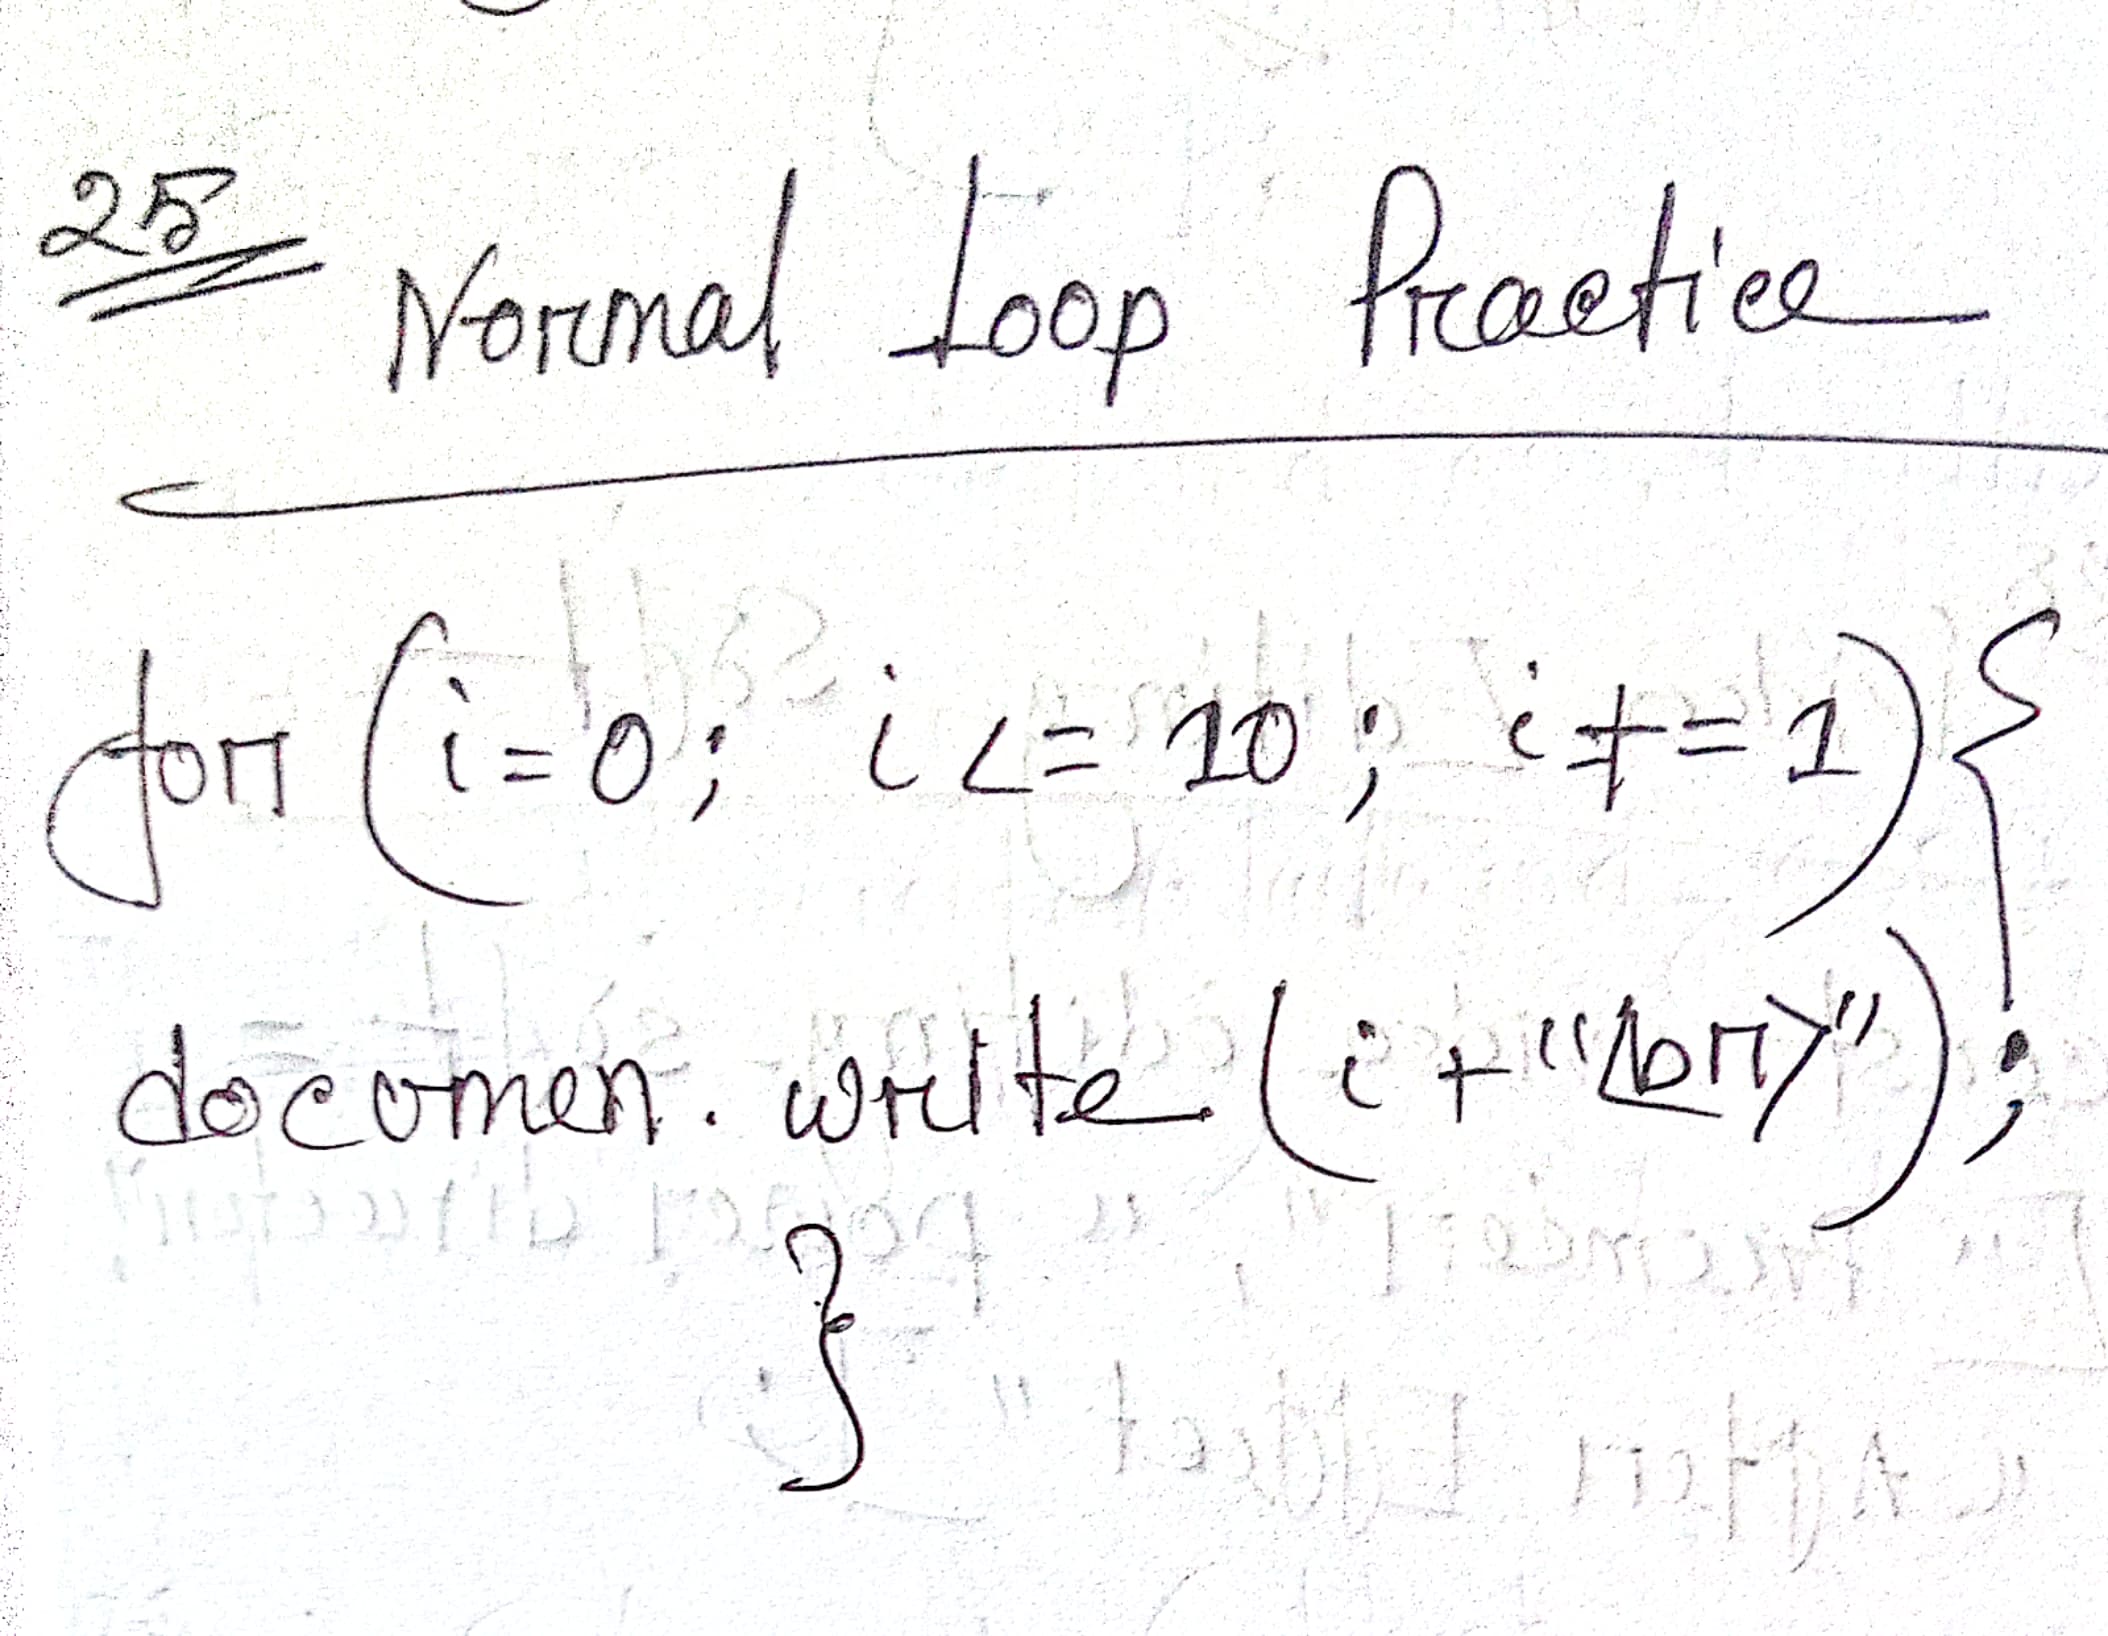 25
Normal Loop Practice
for (i=0; i <= 10; i += 1) {
documen. write (i + "<br>");
}